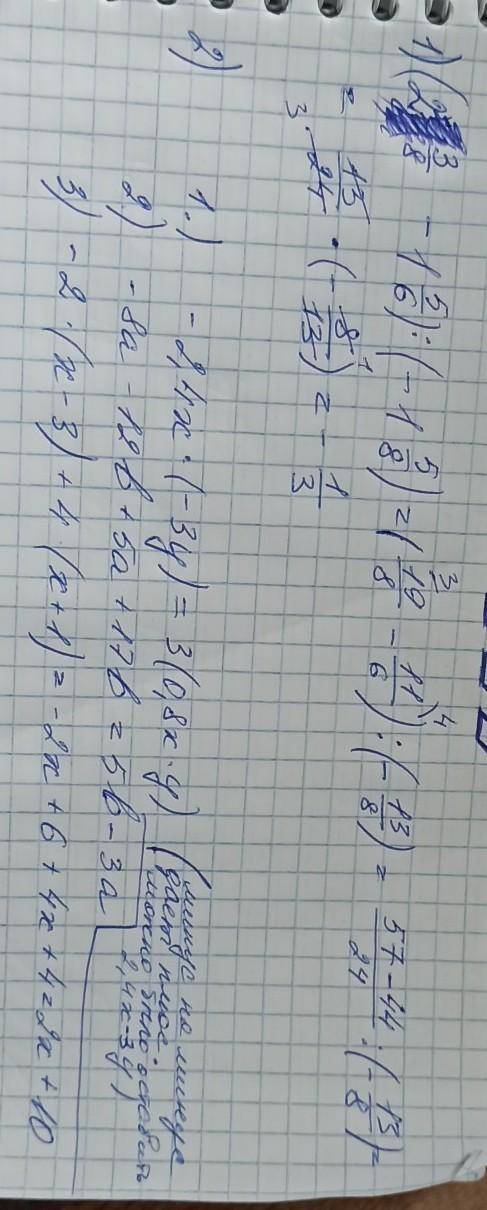 1) (2 3/8 - 1 5/6) : (- 1 5/8) = (19/8 ³ - 11/6 ⁴) : (- 13/8) = 57-44/24 : (- 13/8) =
= 13/24 · (- 8/13) = - 1/3
2)
1.) - 2,4x · (- 3y) = 3(0,8x · y) (минус на минус
дает плюс.
можно было оставить
2,4x · 3y)
2) - 8a - 12b + 5a + 17b = 5b - 3a
3) - 2 · (x - 3) + 4 · (x + 1) = -2x + 6 + 4x + 4 = 2x + 10